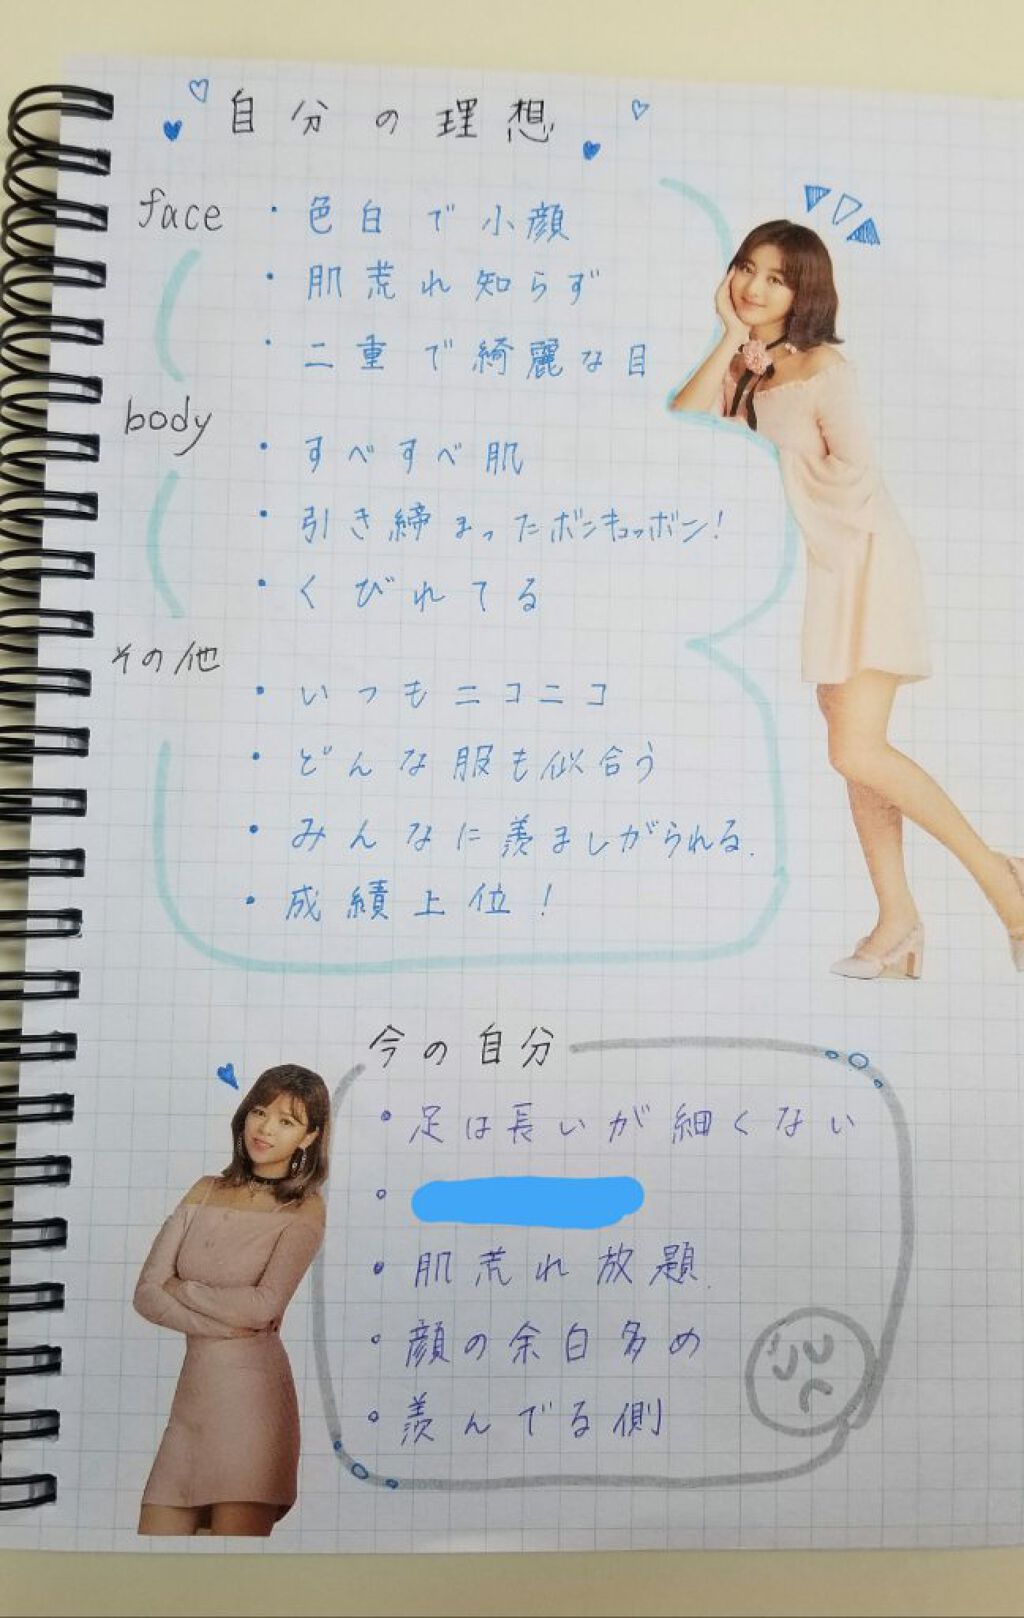 自分の理想
face
・色白で小顔
・肌荒れ知らず
・二重で綺麗な目
body
・すべすべ肌
・引き締まったボンキュッボン!
・くびれてる
その他
・いつもニコニコ
・どんな服も似合う
・みんなに羨ましがられる.
・成績上位!
今の自分
・足は長いが細くない
・肌荒れ放題.
・顔の余白多め
・羨んでる側